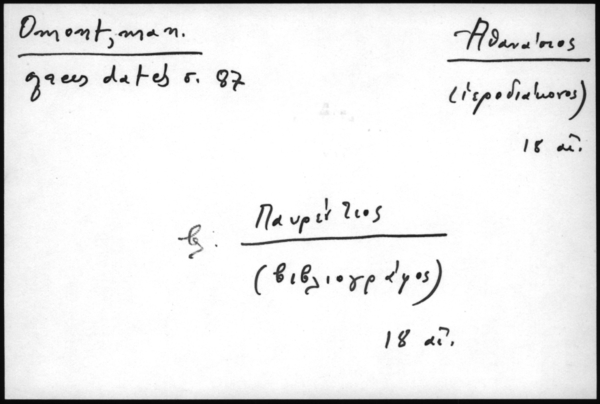 Omont, man.
grecs datés σ. 87
Ἀθανάσιος
(ἱεροδιάκονος)
18 αἰ.
β.
(βιβλιογράφος)
18 αἰ.